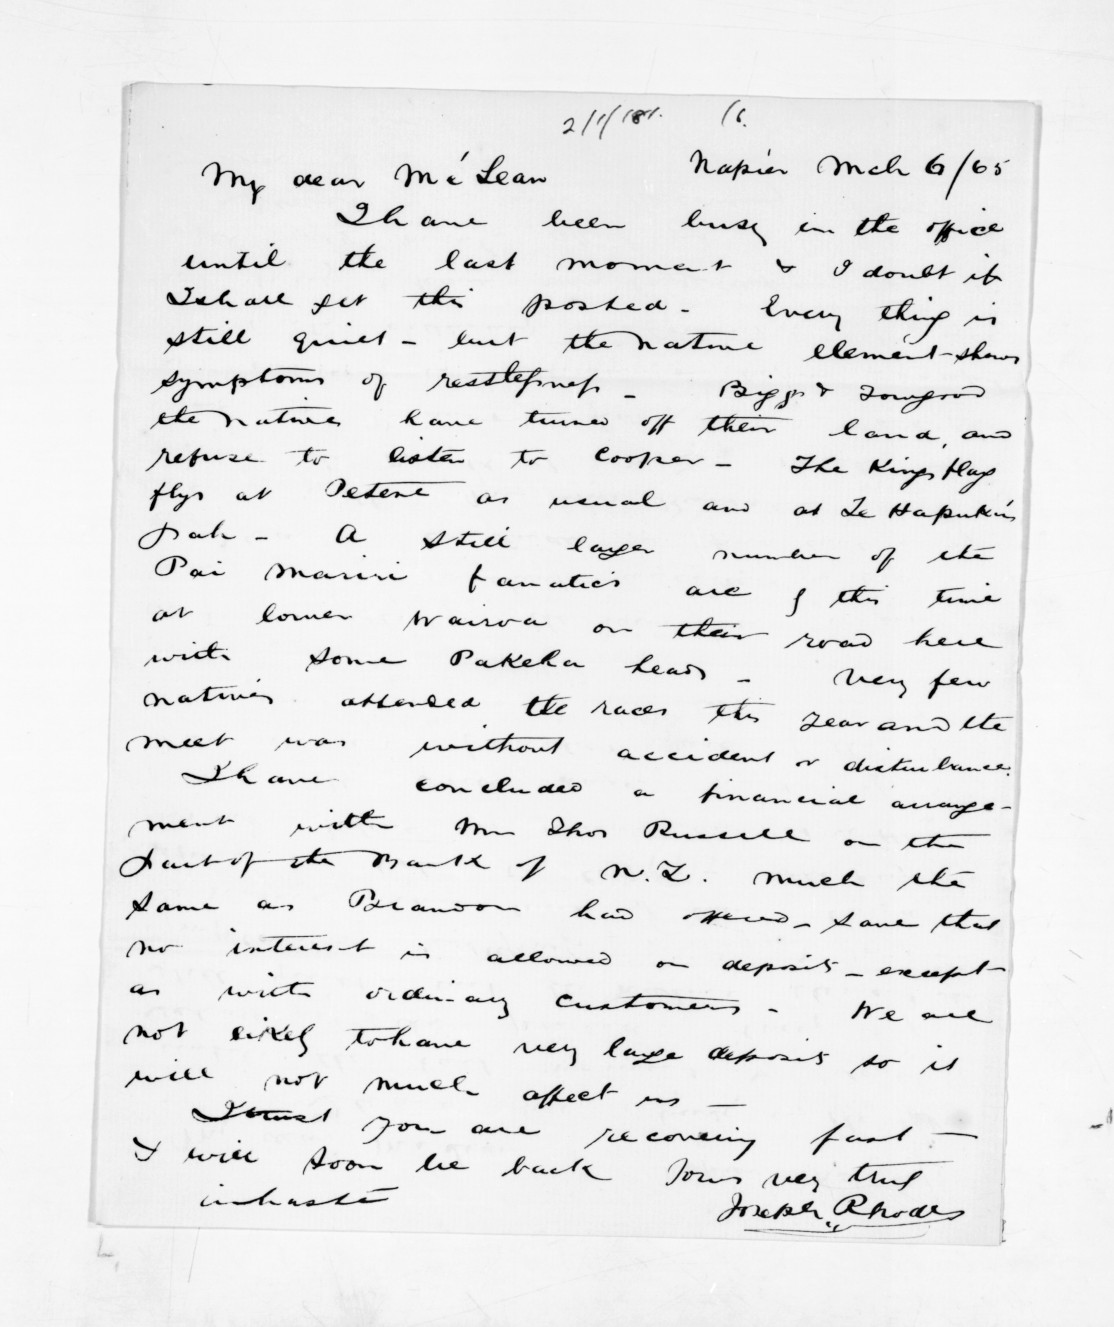 2/1/181. 16.
Napier Mch 6/65
My dear McLean
I have been busy in the office
until the last moment & I doubt if
I shall get this posted - Every thing is
still quiet - but the native element shews
symptoms of restlessness - Biggs & Towgood
the natives have turned off their land, and
refuse to listen to Cooper - The Kings flag
flys at Petene as usual and at Te Hapuku's
pah - A still larger number of the
Pai Mariri fanatics are § this time
at lower Wairoa on their road here
with some Pakeha heads - Very few
natives attended the races this year and the
meet was without accident or disturbance.
I have concluded a financial arrange-
ment with Mr Thos Russell on the
part of the Bank of N.Z. much the
same as Brandon had offered - save that
no interest is allowed on deposits - except
as with ordinary customers - We are
not likely to have very large deposits so it
will not much affect us -
I trust you are recovering fast -
& will soon be back Yours very truly
in haste Joseph Rhodes